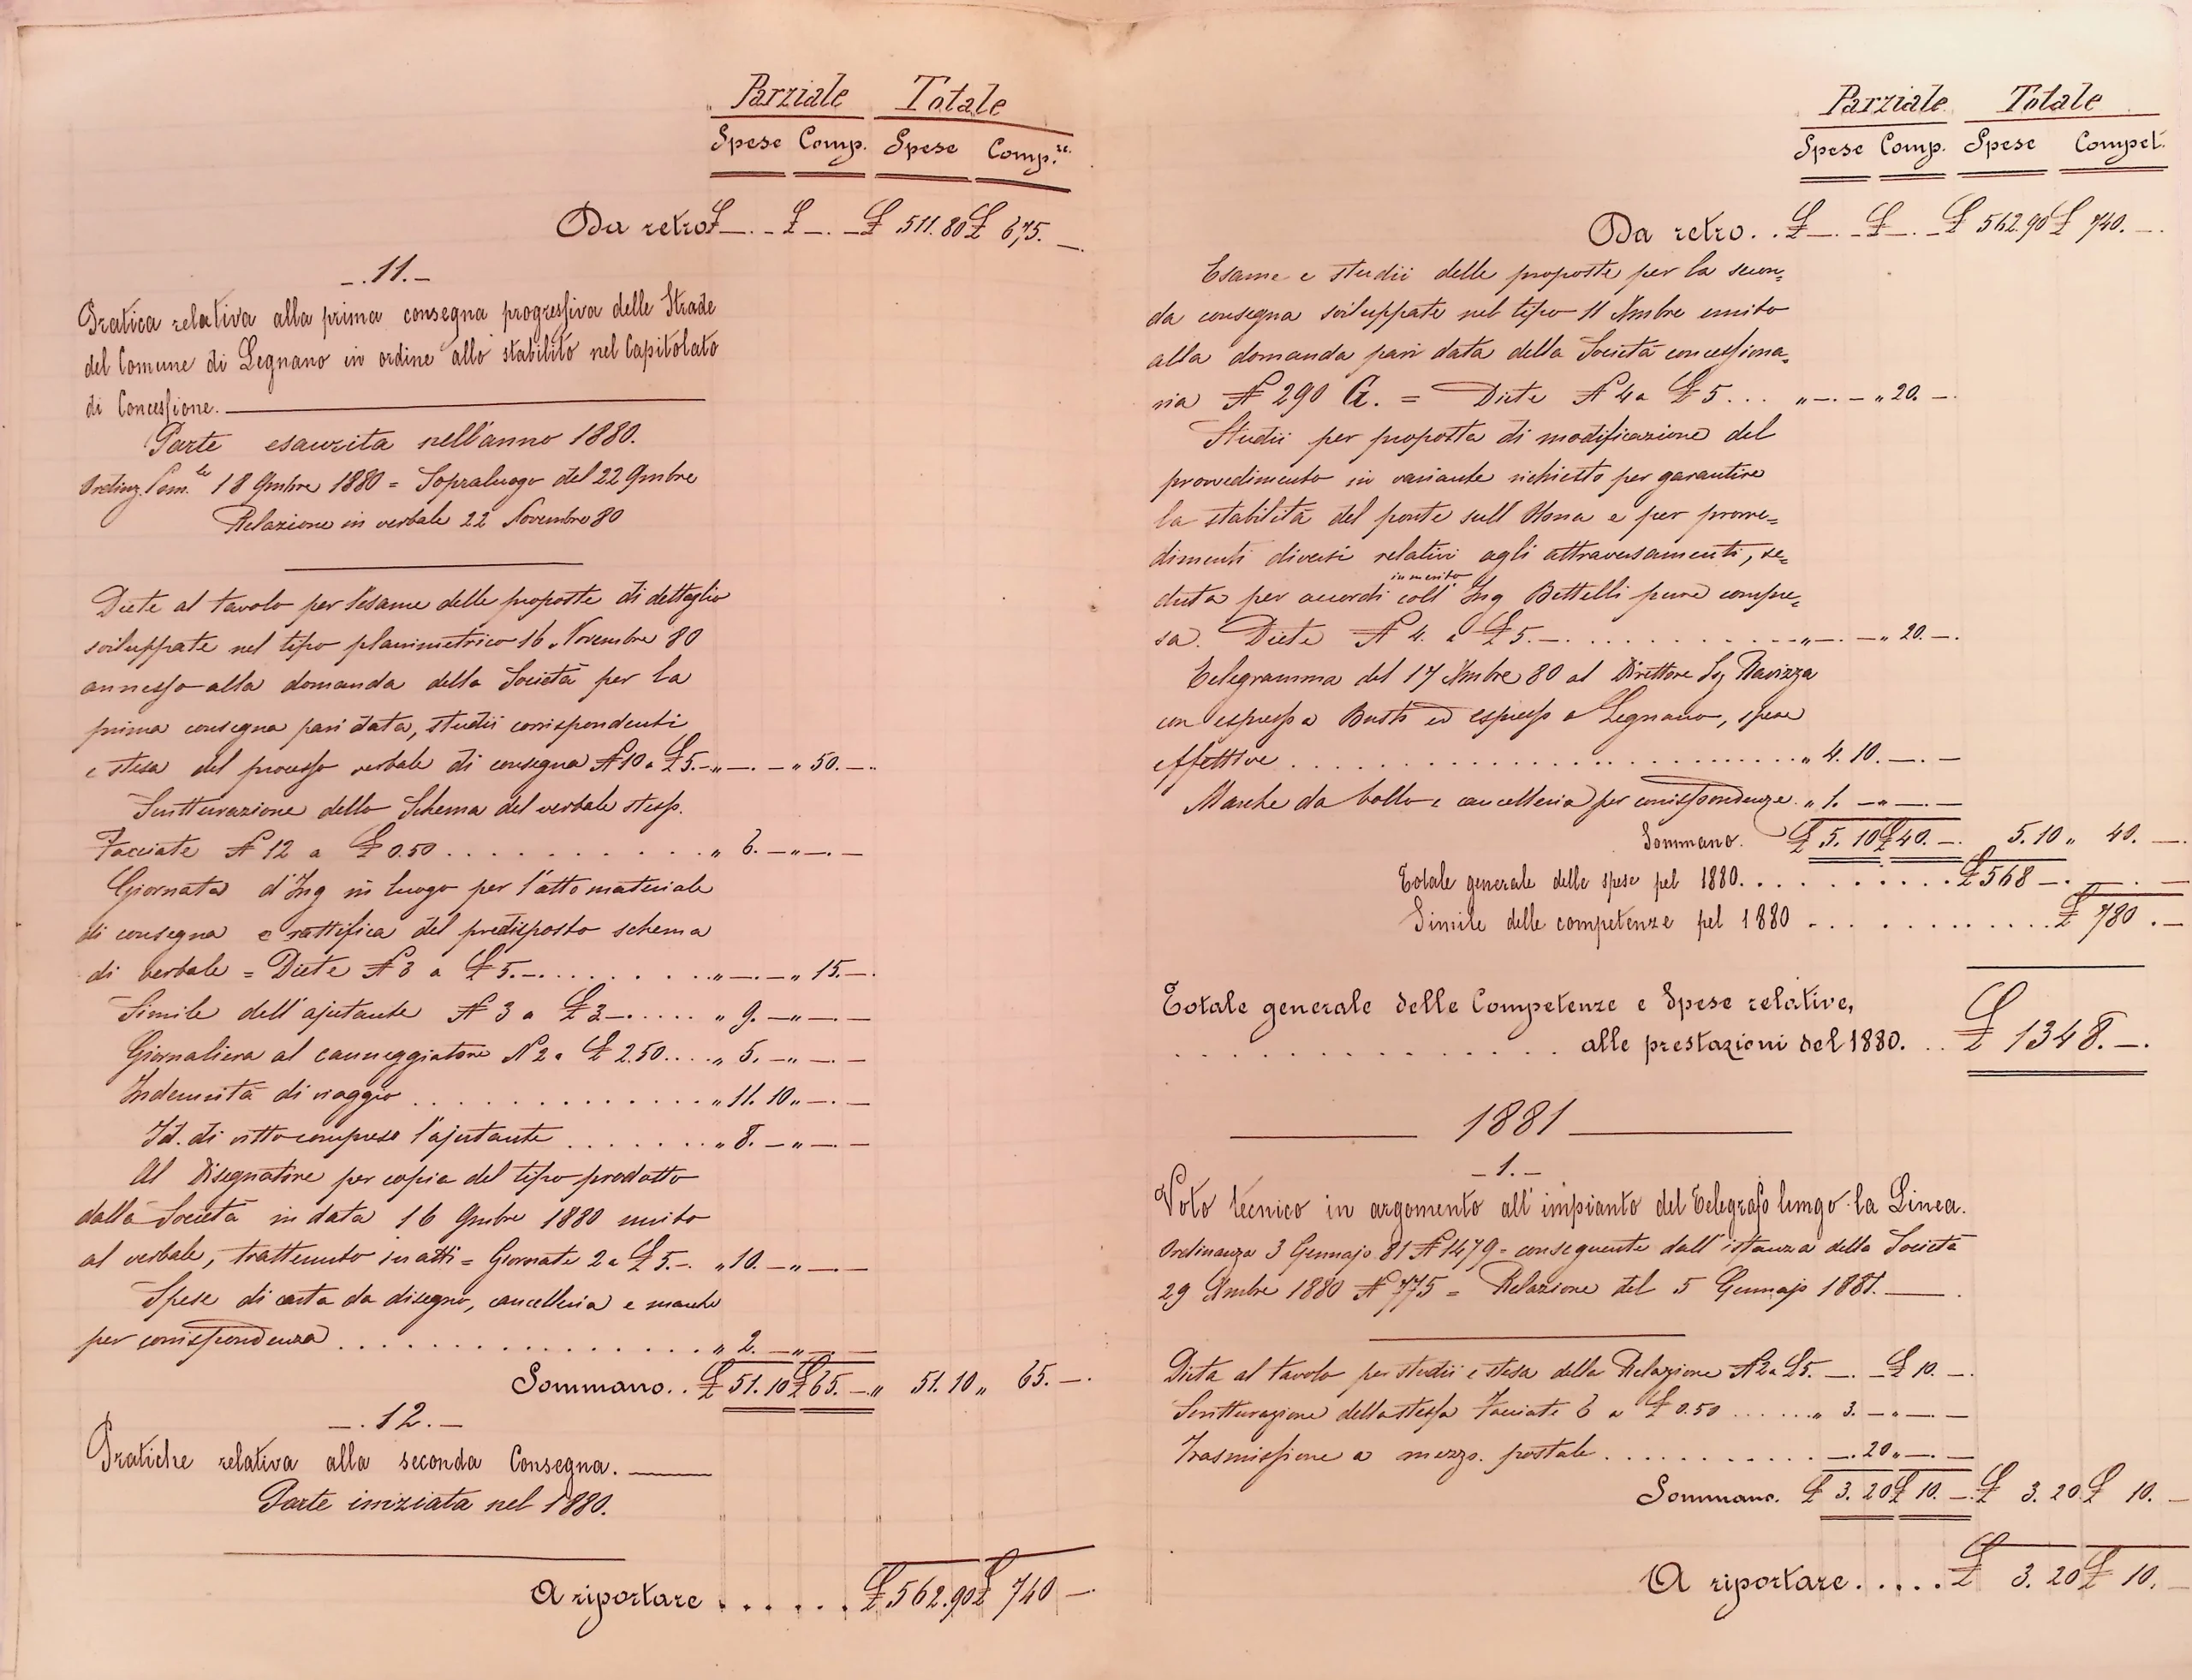 Parziale Totale
Spese Comp. Spese Comp.ze
Da retro £ —. — £ —. — £ 511.80 £ 675. —
—. 11. —
Pratica relativa alla prima consegna progressiva delle Strade
del Comune di Legnano in ordine allo stabilito nel Capitolato
di Concessione.
Parte esaurita nell'anno 1880.
18 9mbre 1880 = Sopraluogo del 22 9mbre
Relazione in verbale 22 Novembre 80
Diete al tavolo per l'esame delle proposte di dettaglio
sviluppate nel tipo planimetrico 16 Novembre 80
annesso alla domanda della Società per la
prima consegna pari data, studii corrispondenti
e stesa del processo verbale di consegna N 10 a £ 5.— „ —. — „ 50. —.
Scritturazione dello Schema del verbale stesso.
Facciate N 12 a £ 0.50 . . . . . . . . . . . „ 6. — „ —. —
Giornata d'Ing in luogo per l'atto materiale
di consegna e rattifica del predisposto schema
di verbale = Diete N 3 a £ 5.—. . . . . . . „ —. — „ 15. —.
Simile dell'ajutante N 3 a £ 3—. . . . . „ 9. — „ —. —
Giornaliera al canneggiatore N 2 a £ 2.50. . . . „ 5. — „ —. —
Indennità di viaggio . . . . . . . . . . . . . „ 11. 10 „ —. —
Id. di vitto compreso l'ajutante . . . . . . . „ 8. — „ —. —
Al Disegnatore per copia del tipo prodotto
dalla Società in data 16 9mbre 1880 unito
al verbale, trattenuto in atti = Giornate 2 a £ 5.—. „ 10. — „ —. —
Spese di carta da disegno, cancelleria e marche
per corrispondenza . . . . . . . . . . . . . . . „ 2. — „ —. —
Sommano. . £ 51. 10 £ 65. — „ 51. 10 „ 65. —.
—. 12. —
Pratiche relativa alla seconda Consegna.
Parte iniziata nel 1880.
A riportare . . . . . . £ 562.90 £ 740 —.
Parziale Totale
Spese Comp. Spese Compet.
Da retro. . £ —. — £ —. — £ 562.90 £ 740. —.
Esame e studii delle proposte per la secon=
da consegna sviluppate nel tipo 11 Xmbre unito
alla domanda pari data della Società concessiona=
ria N 290 G. = Diete N 4 a £ 5 . . . „ —. — „ 20. —.
Studii per proposta di modificazione del
provvedimento in variante richiesto per garantire
la stabilità del ponte sull'Olona e per provve=
dimenti diversi relativi agli attraversamenti, se=
in merito
duta per accordi coll'Ing Bettelli pure compre=
sa. Diete N 4. a £ 5.—. . . . . . . . . . „ —. — „ 20. —.
Telegramma del 17 Xmbre 80 al Direttore Ravizza
con espresso a Busto ed espresso a Legnano, spese
effettive . . . . . . . . . . . . . . . . . . . . . „ 4. 10. —. —
Marche da bollo e cancelleria per corrispondenze „ 1. — „ —. —
Sommano. £ 5. 10 £ 40. —. 5. 10 „ 40. —.
Totale generale delle spese pel 1880. . . . . . . . . . £ 568 —. . —
Simile delle competenze pel 1880 . . . . . . . . . . . . £ 780 . —
Totale generale delle Competenze e Spese relative,
. . . . . . . . . . . . . . . alle prestazioni del 1880. . . £ 1348. —.
1881
— 1. —
Voto tecnico in argomento all'impianto del Telegrafo lungo la Linea.
Ordinanza 3 Gennajo 81 N 1479 = conseguente dall'istanza della Società
29 Xmbre 1880 N 775 = Relazione del 5 Gennajo 1881.
Dieta al tavolo per studii e stesa della Relazione N 2 a £ 5. —. — £ 10. —.
Scritturazione della stessa Facciate 6 a £ 0.50 . . . . . . „ 3. — „ —. —
Trasmissione a mezzo postale . . . . . . . . . . . . —. 20 „ —. —
Sommano. £ 3. 20 £ 10. —. £ 3. 20 £ 10. —
A riportare. . . . . £ 3. 20 £ 10. —